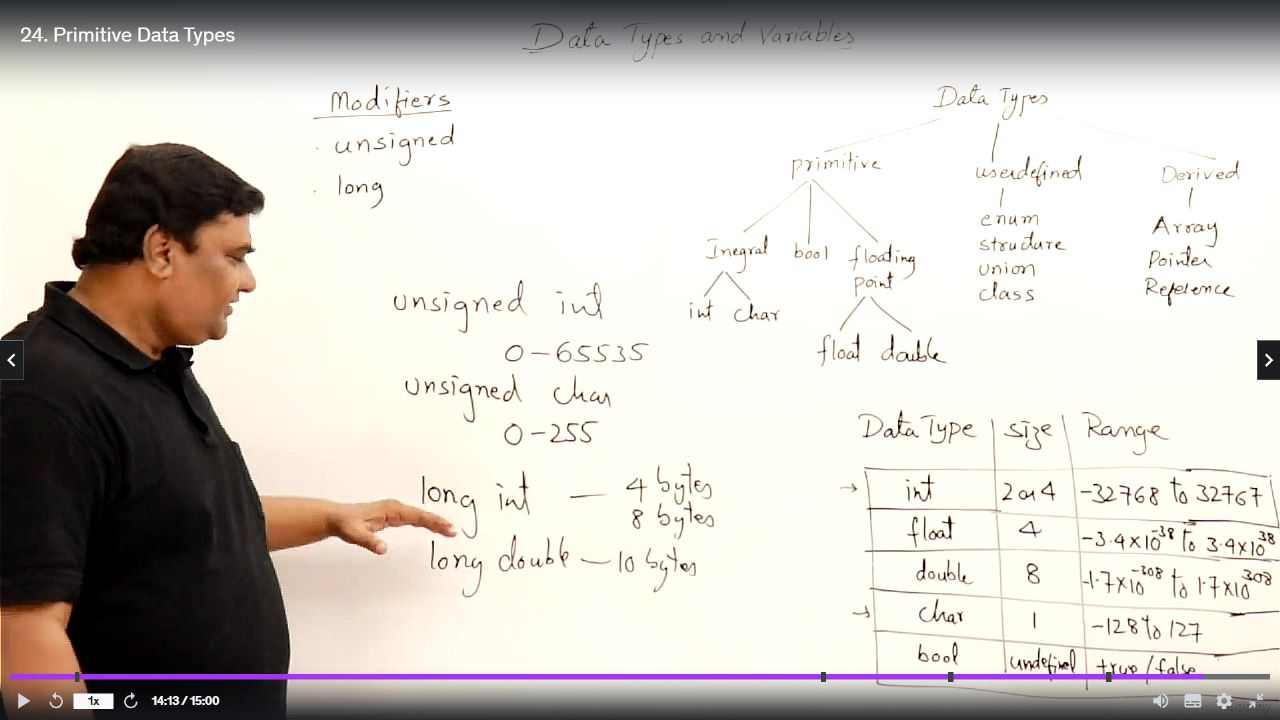 24. Primitive Data Types
Data Types and Variables
Modifiers
· unsigned
· long
unsigned int
0-65535
unsigned char
0-255
long int — 4 bytes
8 bytes
long double — 10 bytes
Data Types
primitive userdefined Derived
Inegral bool floating point
int char
float double
enum
structure
union
class
Array
Pointer
Reference
Data Type size Range
→ int 2 or 4 -32768 to 32767
float 4 -3.4×10^-38 to 3.4×10^38
double 8 -1.7×10^-308 to 1.7×10^308
→ char 1 -128 to 127
bool undefined true/false
1x 14:13 / 15:00